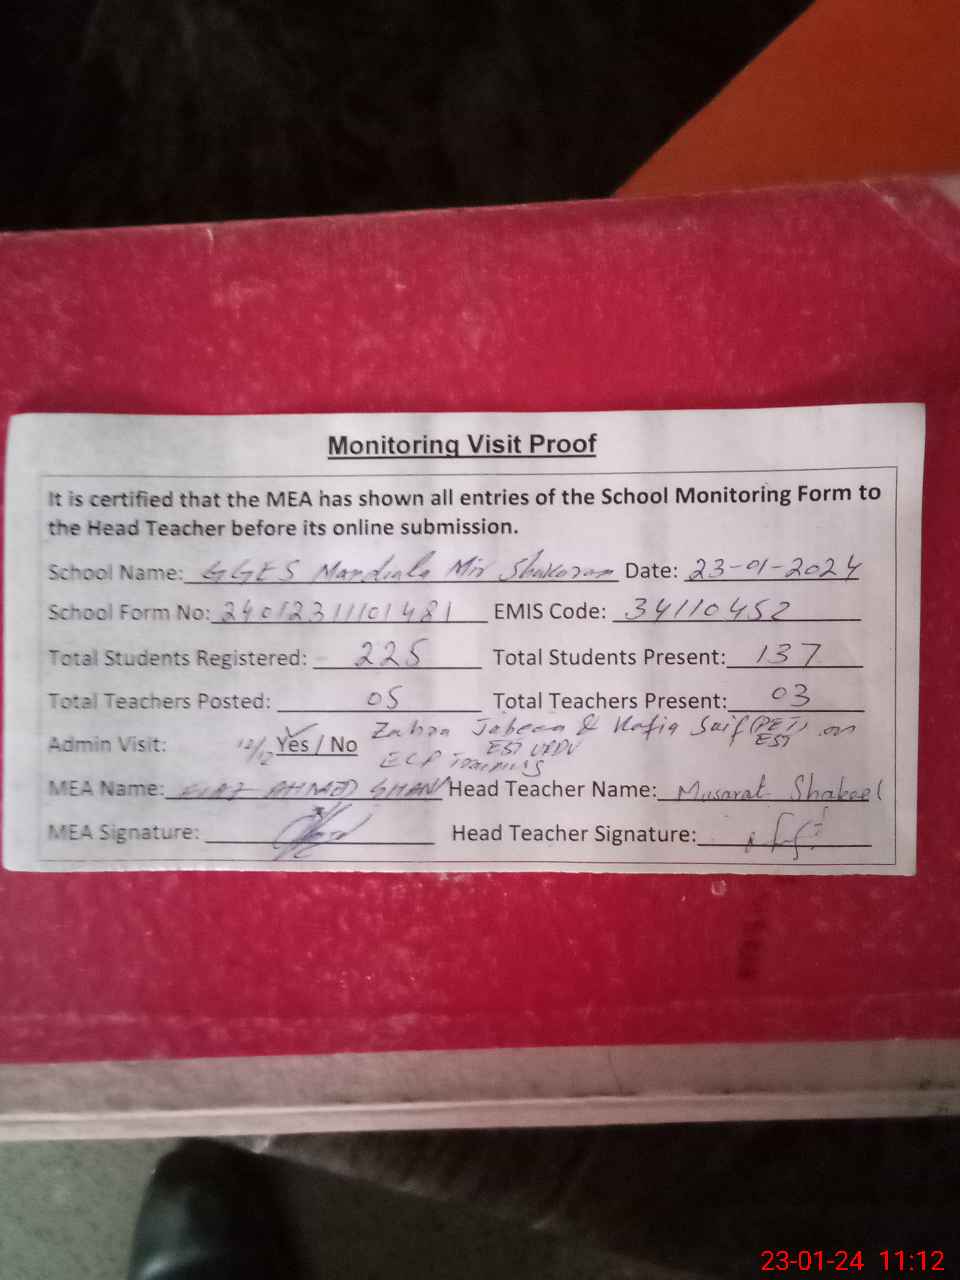 Monitoring Visit Proof
It is certified that the MEA has shown all entries of the School Monitoring Form to
the Head Teacher before its online submission.
School Name: GGES Mandiala Mir Shakaran Date: 23-01-2024
School Form No: 24012311101481 EMIS Code: 34110452
Total Students Registered: 225 Total Students Present: 137
Total Teachers Posted: 05 Total Teachers Present: 03
Admin Visit: 12/12 Yes / No Zahra Jabeen & Hafiq Saif (PET) on
EST URDU EST
Training
MEA Name: AHMED Head Teacher Name: Musarat Shakeel
MEA Signature: Head Teacher Signature:
23-01-24 11:12